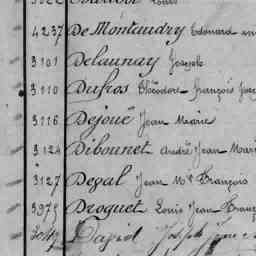 4237 De Montaudry Edouard
3101 Delaunay Joseph
3110 Dufros Théodore François
3116 Dejoué Jean Marie
3124 Dibounet André Jean Mari
3127 Deval Jean Mie François
3975 Droguet Louis Jean Franç
David Joseph